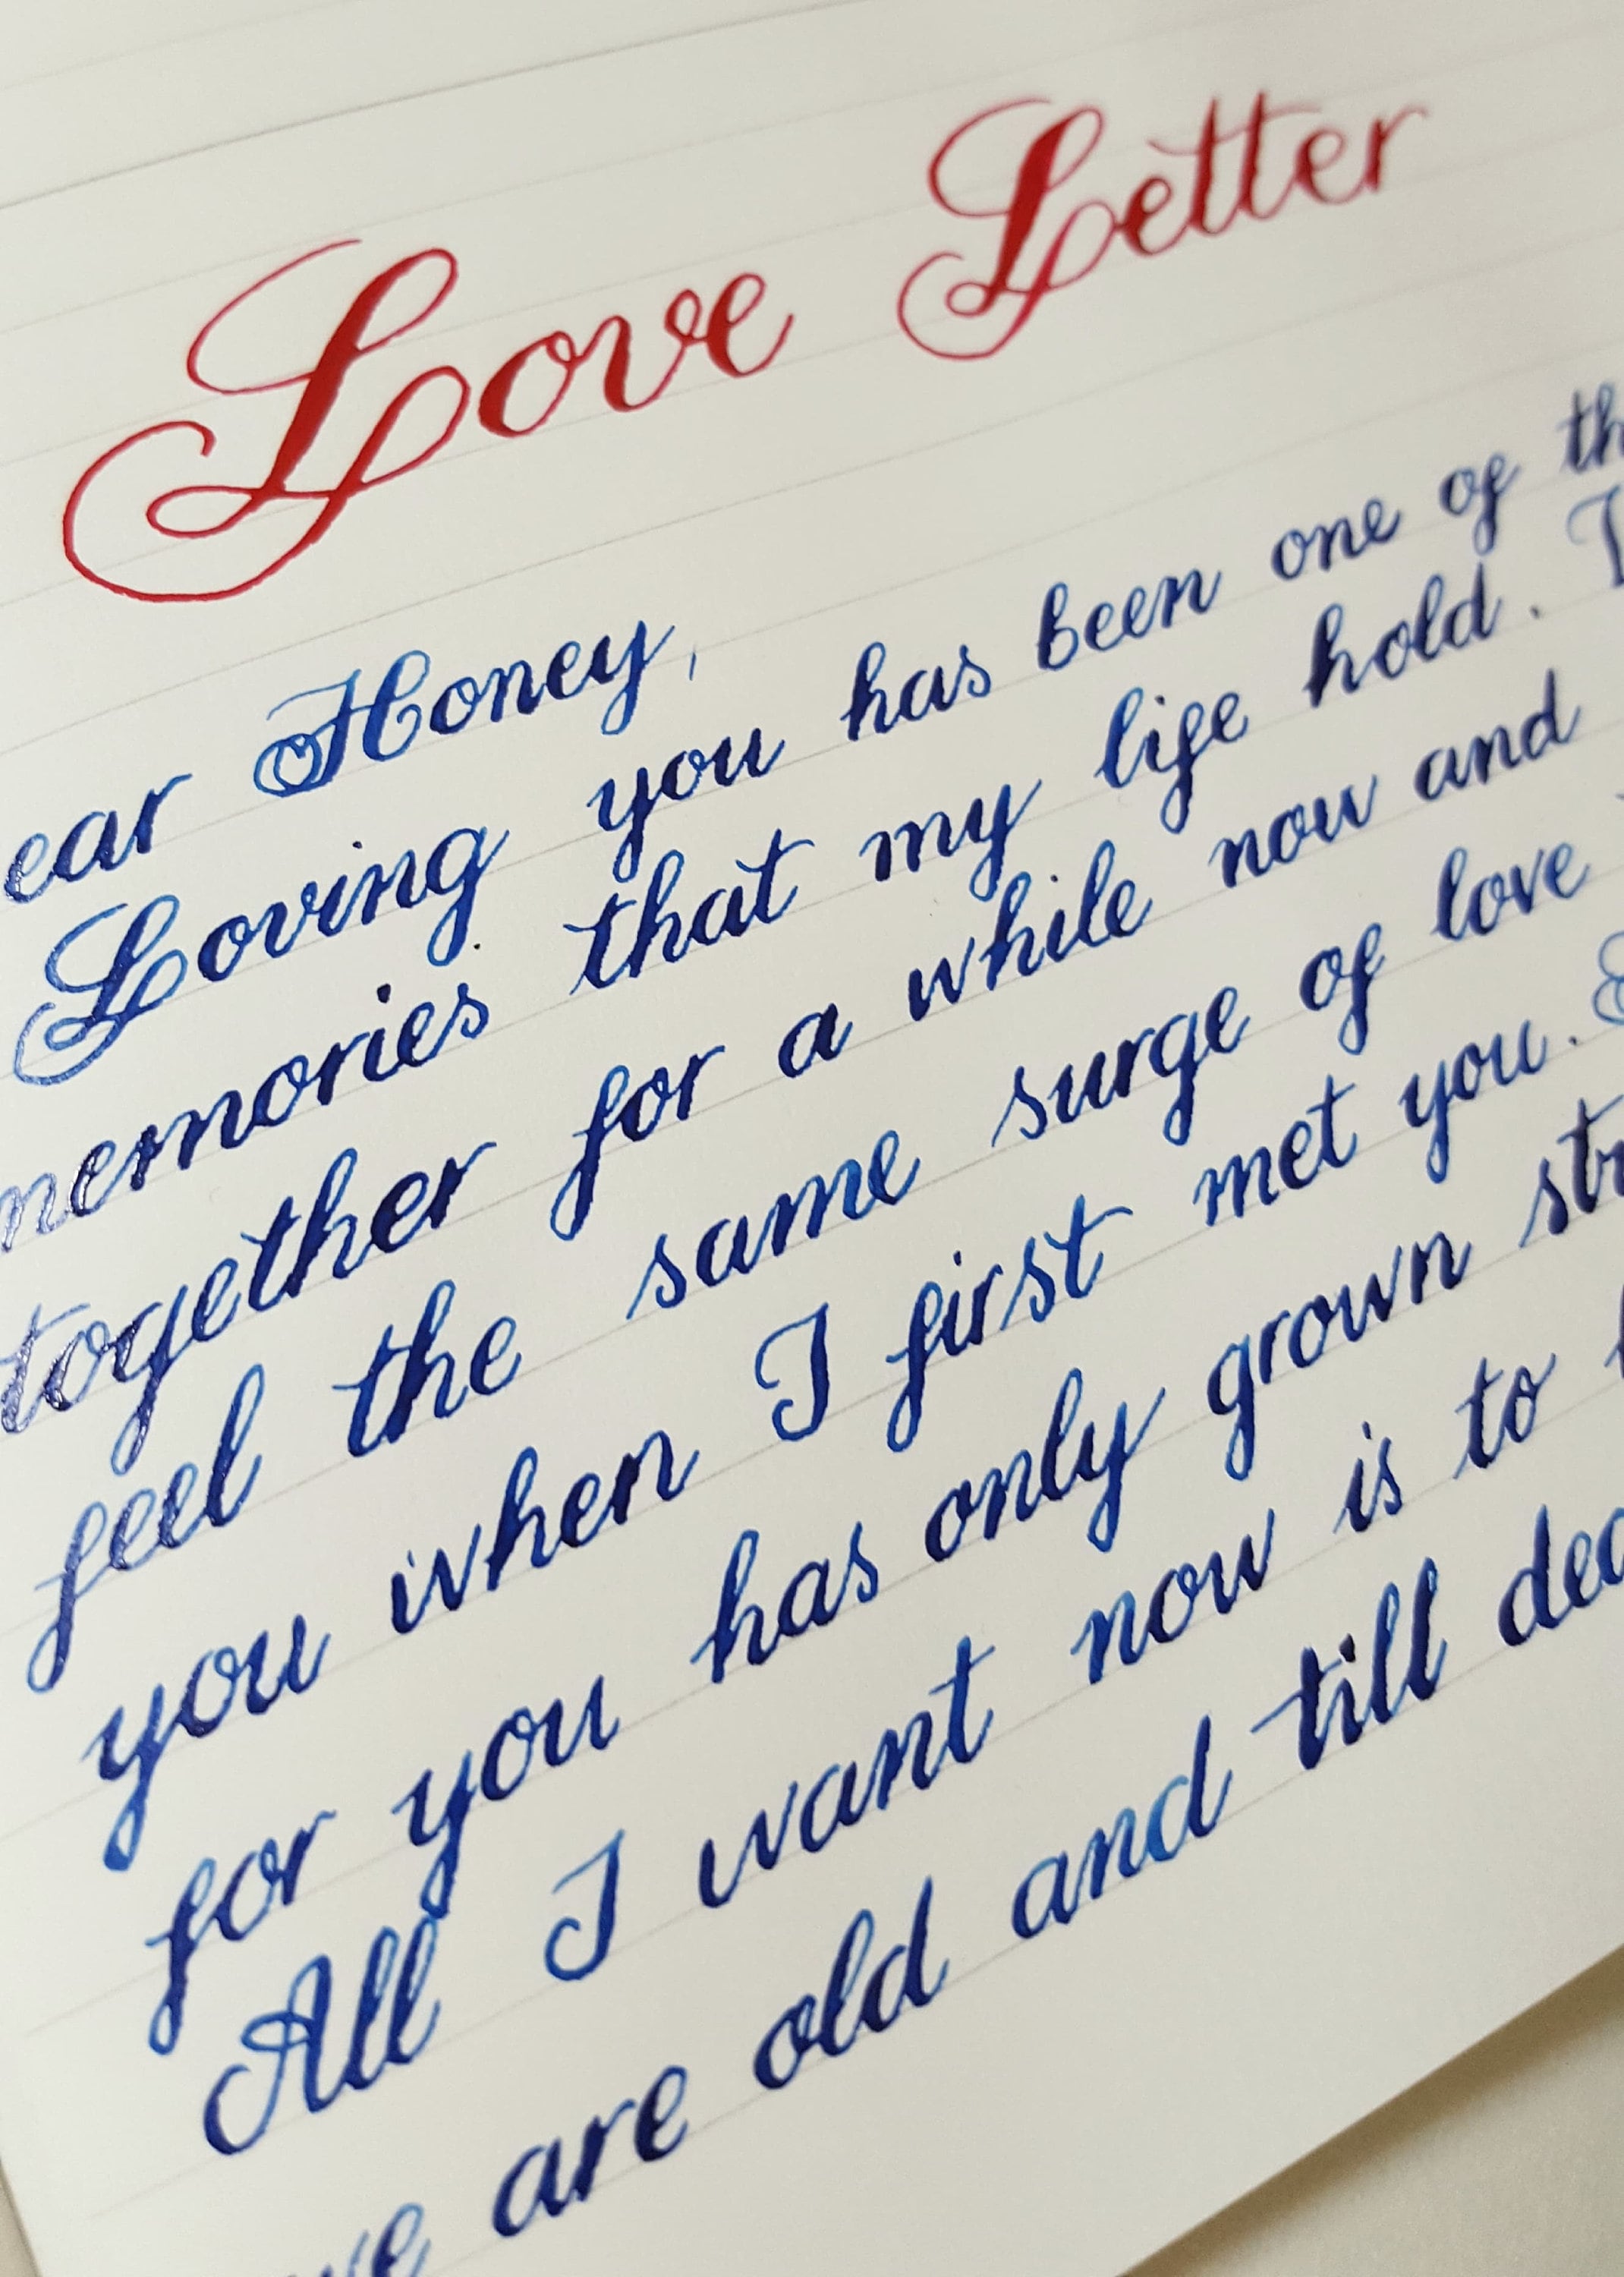 Love Letter
ear Honey,
Loving you has been one of th
memories that my life hold. I
together for a while now and
feel the same surge of love
you when I first met you.
for you has only grown str
All I want now is to
we are old and till dea